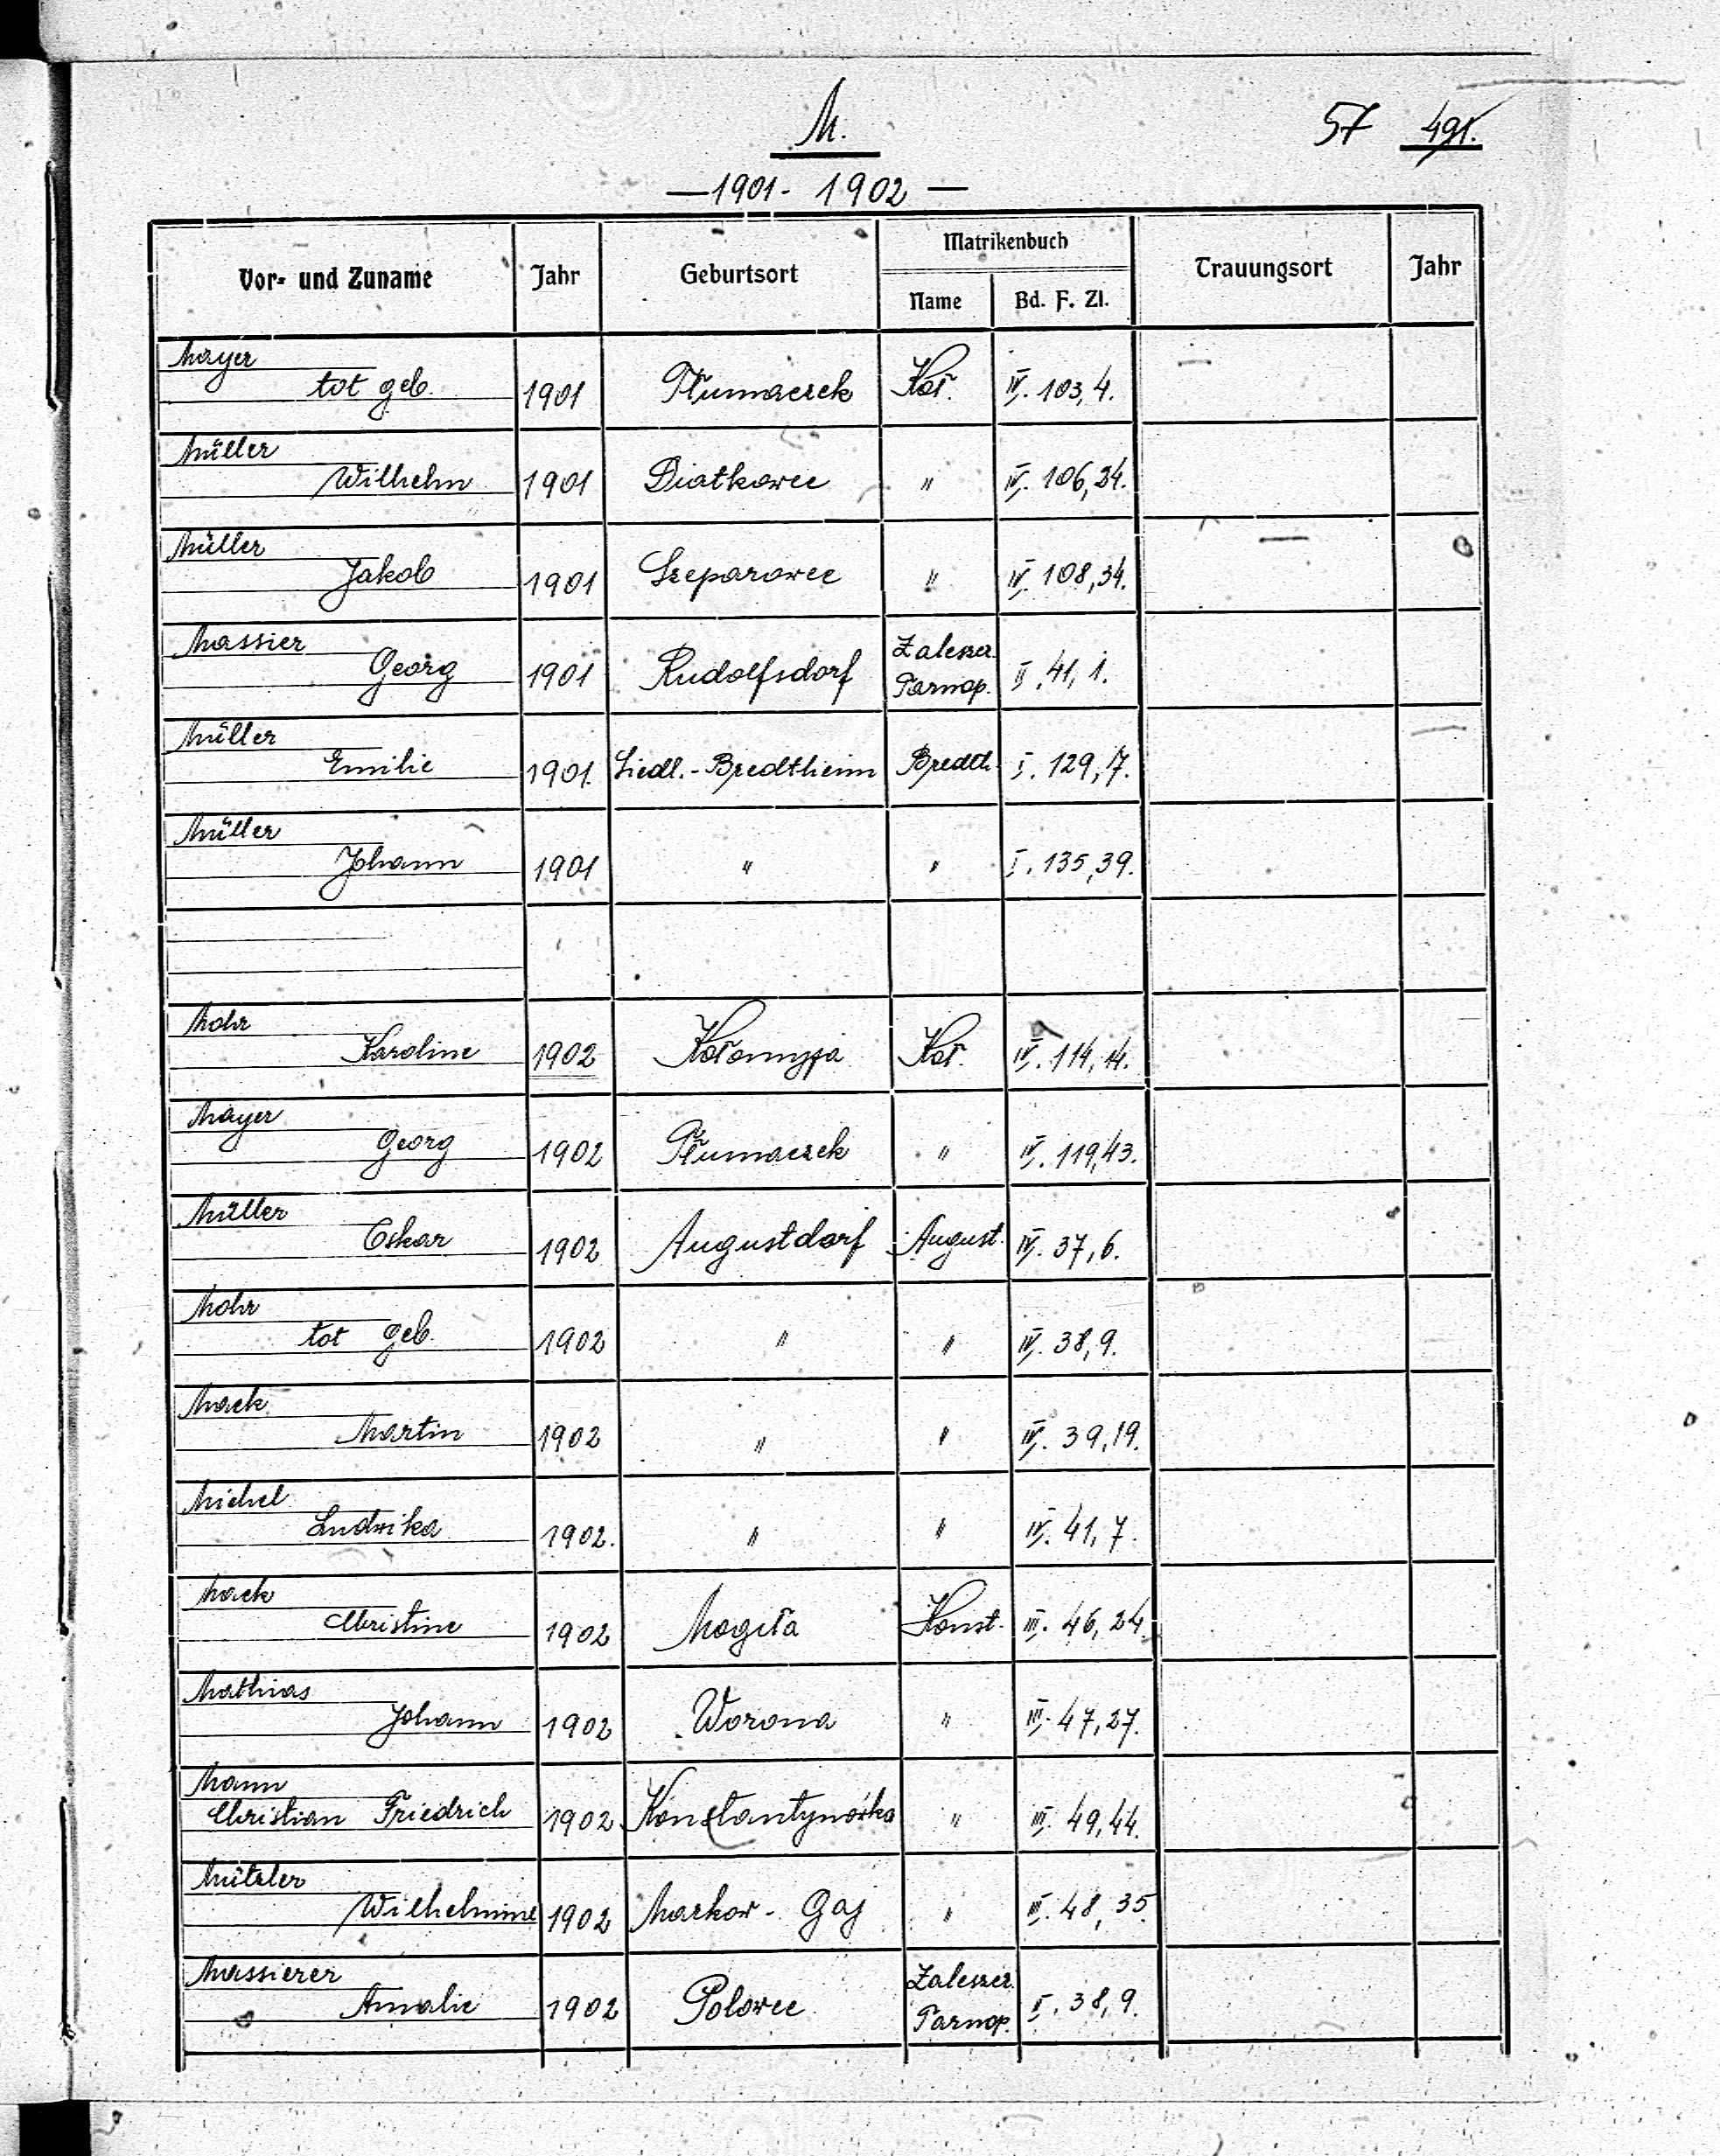 M.
57 491.
—1901- 1902—
Vor- und Zuname Jahr Geburtsort Matrikenbuch Trauungsort Jahr
Name Bd. F. Zl.
Mayer
tot geb. 1901 Tłumaczek Koł. IV. 103,4. —
Müller
Wilhelm 1901 Diatkowce " IV. 106,24.
Müller
Jakob 1901 Szeparowce " IV. 108,34. —
Massier
Georg 1901 Rudolfsdorf Zaleszcz. Tarnop. II. 41, 1.
Müller
Emilie 1901. Siedl.-Bredtheim Bredth. I. 129,7.
Müller
Johann 1901 " " I. 135,39.
Mohr
Karoline 1902 Kołomyja Koł. IV. 114,14.
Mayer
Georg 1902 Tłumaczek " IV. 119,43.
Müller
Oskar 1902 Augustdorf August. IV. 37,6.
Mohr
tot geb. 1902 " " IV. 38,9.
Mack
Martin 1902 " " IV. 39,19.
Michel
Ludwika 1902. " " IV. 41,7.
Mack
Christine 1902 Mogiła Konst. III. 46,24.
Mathias
Johann 1902 Worona " III. 47,27.
Mann
Christian Friedrich 1902 Konstantynówka " III. 49,44.
Mützler
Wilhelmine 1902 Markow- Gaj " III. 48,35.
Massierer
Amalie 1902 Polowce Zaleszcz. Tarnop. II. 38,9.